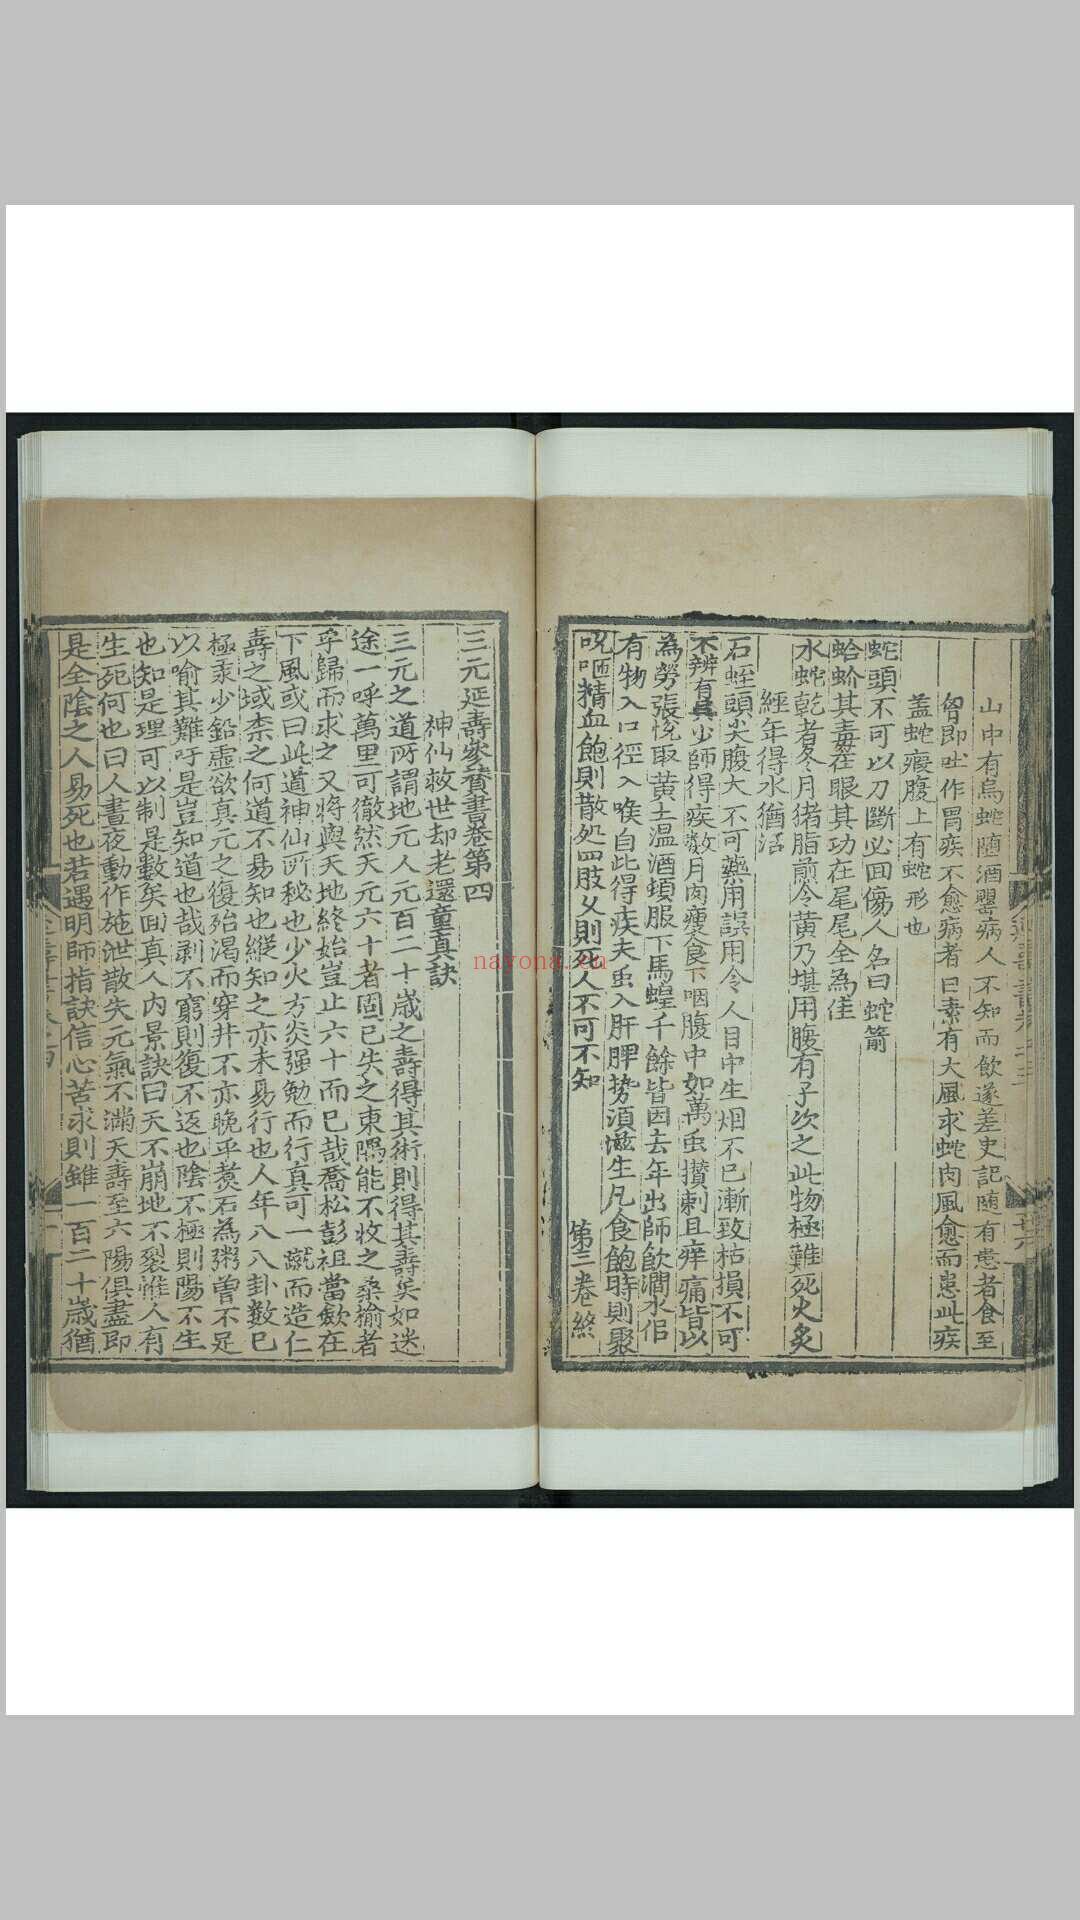 山中有烏蛇墮酒罌病人不知而飲遂差史記隨有患者食至
胷即吐作胃疾不愈病者曰素有大風求蛇肉風愈而患此疾
盖蛇瘕腹上有蛇形也
蛇頭不可以刀斷必回傷人名曰蛇箭
蛤蚧其毒在眼其功在尾尾全為佳
水蛇乾者冬月猪脂煎令黄乃堪用腹有子次之此物極難死火炙
經年得水猶活
石蛭頭尖腹大不可藥用誤用令人目中生烟不已漸致枯損不可
不辨有吳少師得疾數月肉瘦食下咽腹中如萬虫攅刺且痒痛皆以
為勞張悅取黄土温酒頓服下馬蝗千餘皆因去年出師飲澗水佀
有物入口徑入喉自此得疾夫虫入肝脾势須滋生凡食飽時則聚
吮咂精血飽則散処四肢久則死人不可不知
第三卷終
三元延壽叅賛書卷第四
神仙救世却老還童真訣
三元之道所謂地元人元百二十歲之壽得其術則得其壽矣如迷
途一呼萬里可徹然天元六十者固已失之東隅能不收之桑榆者
乎歸而求之又将與天地終始豈止六十而已哉喬松彭祖當歛在
下風或曰此道神仙所秘也少火方炎强勉而行真可一蹴而造仁
壽之域柰之何道不易知也縱知之亦未易行也人年八八卦数已
極汞少鉛虛欲真元之復殆渴而穿井不亦晚乎煮石為粥曾不足
以喻其難吁是豈知道也哉剥不窮則復不返也陰不極則陽不生
也知是理可以制是數矣回真人内景訣曰天不崩地不裂惟人有
生死何也曰人晝夜動作施泄散失元氣不滿天壽至六陽俱盡即
是全陰之人易死也若遇明師指訣信心苦求則雖一百二十歲猶
nayona.cn